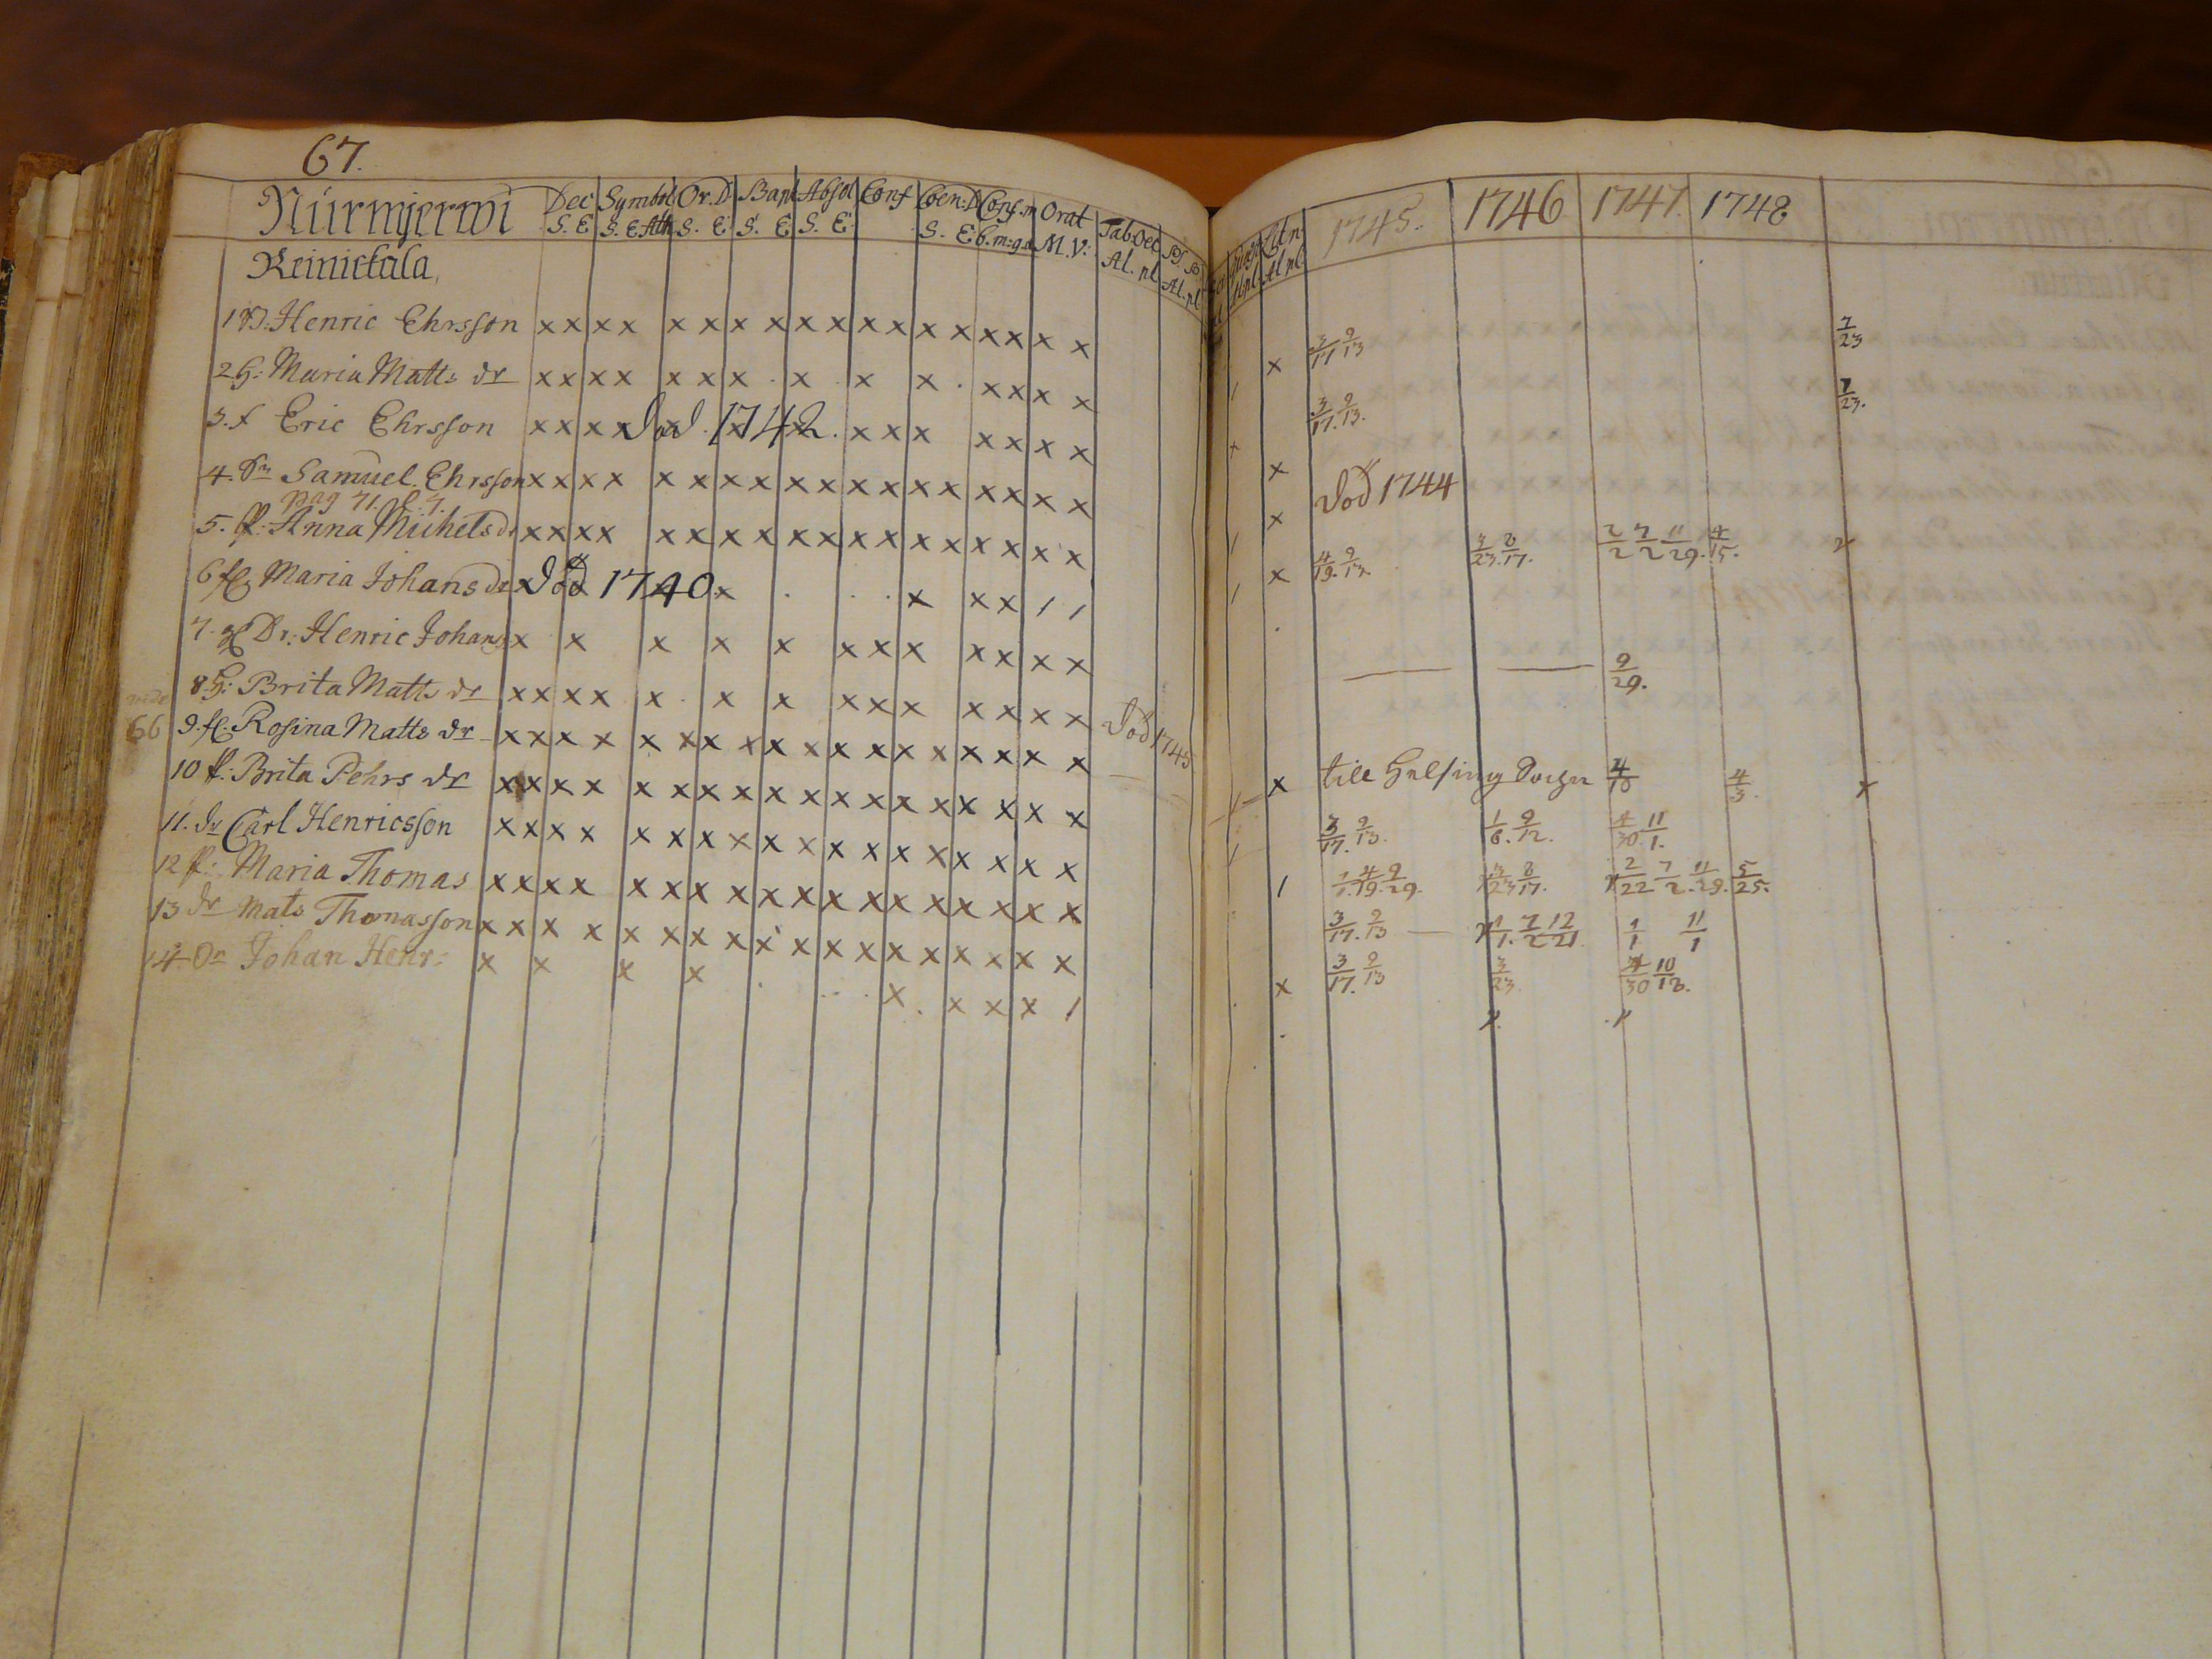 67.
Nurmjerwi Dec Symbol Or. D Bapt Absol Conf Coen: D Conf. m Orat Tab Oec
S. E S. E Ath S. E S. E S. E S. E M. V: Al. pl Al. pl
Reinickala
1 B. Henric Ehrsson x x x x x x x x x x x x x x x x x x
2 H: Maria Matts dr x x x x x x x . x . x x . x x x x
3. Eric Ehrsson död. 1742.
4. Sn Samuel Ehrsson x x x x x x x x x x x x x x x x x x
pag 71.
5. Anna Michels dr x x x x x x x x x x x x x x x x x x
6 Maria Johans dr död 1740.
7. Dr: Henric Johans x x x x x x x x x x x x
8 H: Brita Matts dr x x x x x . x x x x x x x x x död 1745
66 9. Rosina Matts dr x x x x x x x x x x x x x x x x x x
10 Brita Pehrs dr x x x x x x x x x x x x x x x x x x
11. dr Carl Henricsson x x x x x x x x x x x x x x x x x x
12 Maria Thomas x x x x x x x x x x x x x x x x x x
13 dr Mats Thomasson x x x x x x x x x x x x x x x x x x
14 Dr Johan Henr: x x x x x . x x x /
1745. 1746 1747. 1748
Al pl
x 3/17 9/13 7/23
3/17. 9/13. 7/23.
x död 1744
x 4/19. 9/13. 3/23. 8/17. 2/2 7/2 11/29. 4/15.
9/29.
x till Helsing Sochn 4/3.
3/17. 9/13. 1/6. 9/12. 4/30 11/1.
4/19. 9/29. 3/23 8/17. 2/22 7/2. 11/29. 5/25.
3/17. 9/13 7/2 12/21 1/1 11/1
x 3/17. 9/13 3/23. 4/30 10/18.